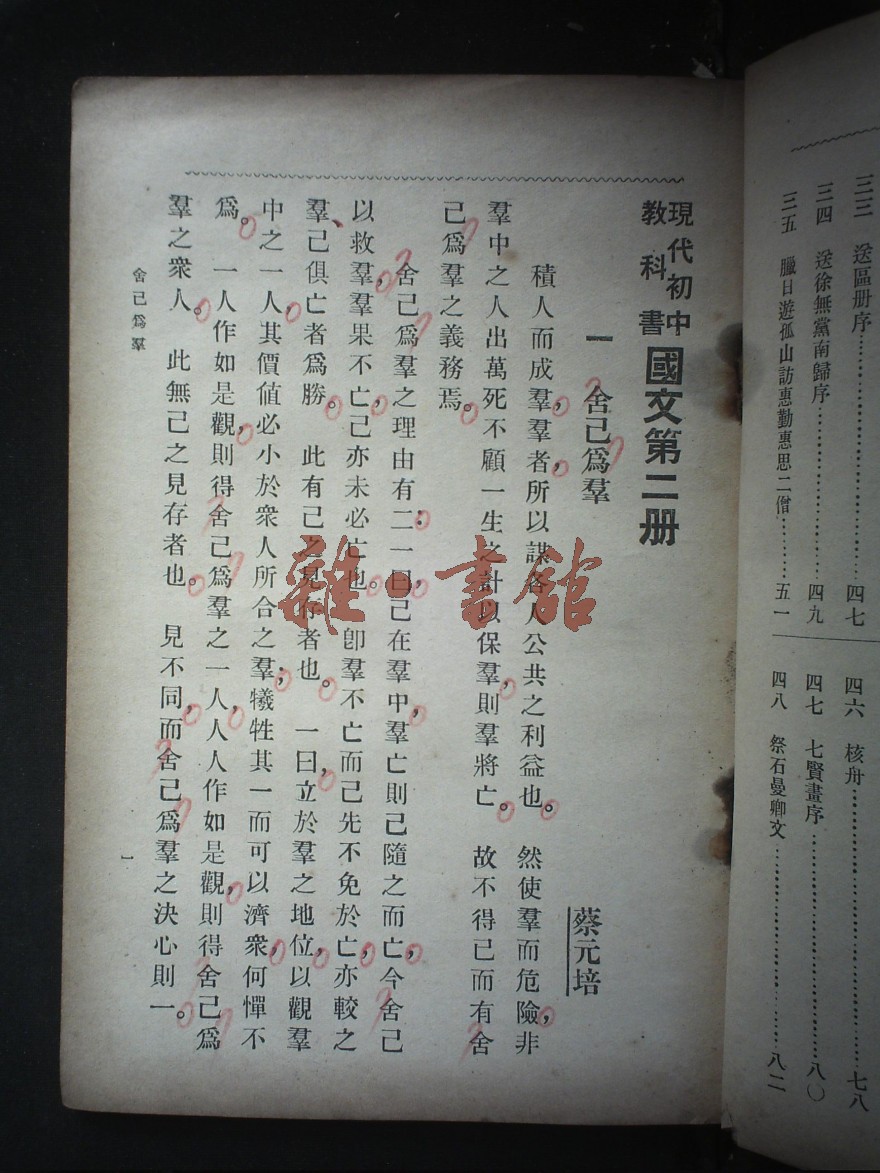 三三 送區册序……四七
三四 送徐無黨南歸序……四九
三五 臘日遊孤山訪惠勤惠思二僧……五一
四六 核舟……七八
四七 七賢畫序……八〇
四八 祭石曼卿文……八二
現代初中
教科書
國文第二册
一 舍己爲羣
蔡元培
積人而成羣,羣者,所以謀各人公共之利益也。然使羣而危險,非
羣中之人出萬死不顧一生之計以保羣,則羣將亡。故不得已而有舍
己爲羣之義務焉。
舍己爲羣之理由有二:一曰,己在羣中,羣亡則己隨之而亡,今舍己
以救羣,羣果不亡,己亦未必亡也。卽羣不亡而己先不免於亡,亦較之
羣、己俱亡者爲勝。此有己之見存者也。一曰,立於羣之地位,以觀羣
中之一人,其價値必小於衆人所合之羣;犧牲其一而可以濟衆,何憚不
爲。一人作如是觀,則得舍己爲羣之一人,人人作如是觀,則得舍己爲
羣之衆人。此無己之見存者也。見不同,而舍己爲羣之決心則一。
舍己爲羣
一
雜·書館